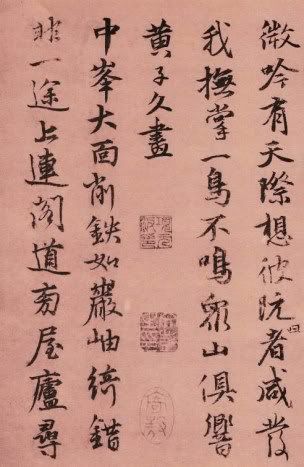 微吟有天際想彼阮者咸發
我撫掌一鳥不鳴眾山俱響
黄子久畫
中峯大面削鉄如巖岫綺錯
非一途上連閣道旁屋廬尋